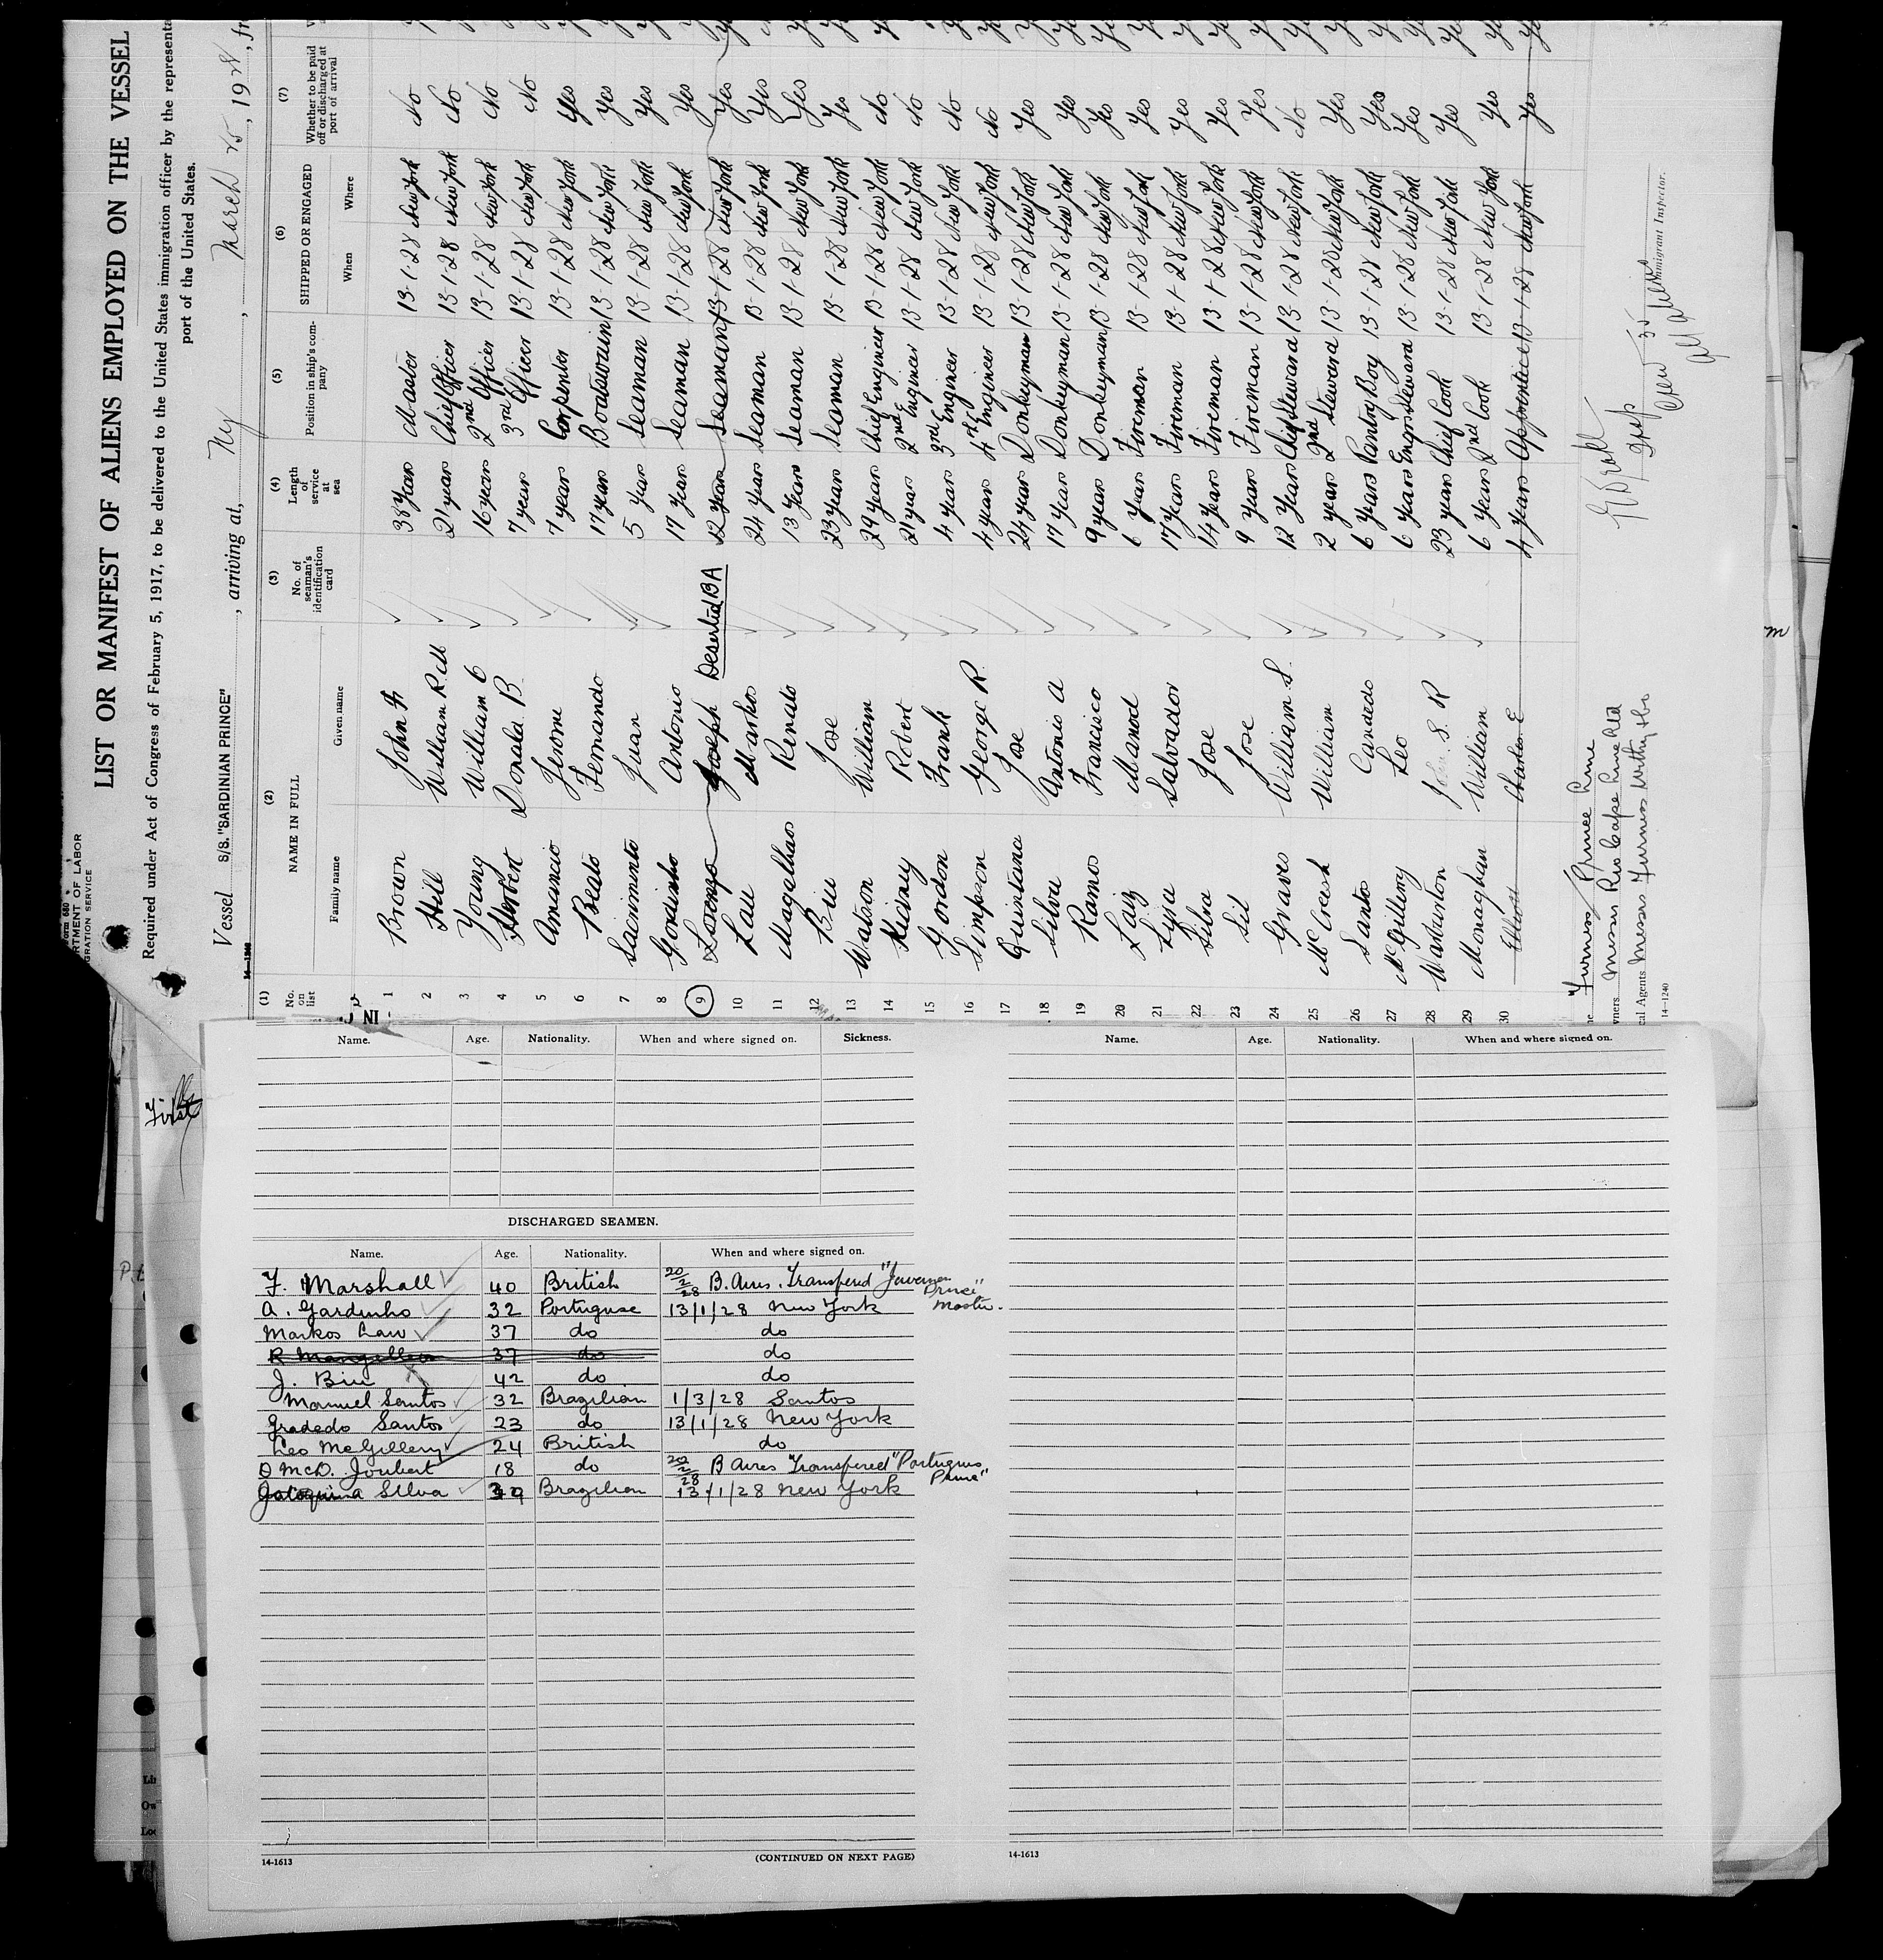 LIST OR MANIFEST OF ALIENS EMPLOYED ON THE VESSEL
Required under Act of Congress of February 5, 1917, to be delivered to the United States immigration officer by the representa
port of the United States.
Vessel S/S. "SARDINIAN PRINCE", arriving at, NY, March 25, 1928, fr
(1) (2) (3) (4) (5) (6) (7)
No. on list NAME IN FULL No. of seaman's identification card Length of service at sea Position in ship's company SHIPPED OR ENGAGED Whether to be paid off or discharged at port of arrival
Family name Given name When Where
1 Brown John 38 Years Master 13-1-28 New York No
2 Hill William R 21 years Chief Officer 13-1-28 New York No
3 Young William C 16 years 2nd Officer 13-1-28 New York No
4 Herbert Donald B. 7 years 3rd Officer 13-1-28 New York No
5 Amancio Jerome 7 years Carpenter 13-1-28 New York Yes
6 Beato Fernando 17 years Boatswain 13-1-28 New York Yes
7 Sacrimento Juan 5 Years Seaman 13-1-28 New York Yes
8 Gordinho Antonio 17 Years Seaman 13-1-28 New York Yes
9 Lorenzo Joseph Deserted BA 12 Years Seaman 13-1-28 New York Yes
10 Lau Markos 24 Years Seaman 13-1-28 New York Yes
11 Magalthas Renato 13 Years Seaman 13-1-28 New York Yes
12 Biu Jose 23 Years Seaman 13-1-28 New York Yes
13 Watson William 29 Years Chief Engineer 13-1-28 New York No
14 Kidney Robert 21 years 2nd Engineer 13-1-28 New York No
15 Gordon Frank 4 Years 3rd Engineer 13-1-28 New York No
16 Simpson George R. 4 years 4th Engineer 13-1-28 New York No
17 Quintana Jose 24 years Donkeyman 13-1-28 New York Yes
18 Silva Antonio A 17 Years Donkeyman 13-1-28 New York Yes
19 Ramos Francisco 9 years Donkeyman 13-1-28 New York Yes
20 Laiz Manuel 6 Years Fireman 13-1-28 New York Yes
21 Lyra Salvador 17 Years Fireman 13-1-28 New York Yes
22 Silva Jose 14 Years Fireman 13-1-28 New York Yes
23 Sil Jose 9 Years Fireman 13-1-28 New York Yes
24 Graves William S. 12 Years Chief Steward 13-1-28 New York No
25 McCresh William 2 years 2nd Steward 13-1-28 New York Yes
26 Santos Candedo 6 Years Pantry Boy 13-1-28 New York Yes
27 McGillemy Leo 6 Years Engrs Steward 13-1-28 New York Yes
28 Warburton John S. R 23 years Chief Cook 13-1-28 New York Yes
29 Monaghan William 6 Years 2nd Cook 13-1-28 New York Yes
30 Elliott Charles E 4 Years Apprentice 13-1-28 New York Yes
Furness Prince Line
wners Messrs Rio Cape Line Ltd
cal Agents Messrs Furness Withy & Co
Immigrant Inspector.
Crew 35
14-1240
First
Name. Age. Nationality. When and where signed on. Sickness.
DISCHARGED SEAMEN.
Name. Age. Nationality. When and where signed on.
F. Marshall 40 British 20/2/28 B. Aires. Transfered "Javanese Prince" Master.
A. Gardinho 32 Portuguse 13/1/28 New York
Markos Law 37 do do
R Mangellion 37 do do
J. Biu 42 do do
Manuel Santos 32 Brazilian 1/3/28 Santos
Gradedo Santos 23 do 13/1/28 New York
Leo McGillery 24 British do
D McD. Joubert 18 do 20/2/28 B Aires Transfered "Portugues Prince"
Joaquina Silva 39 Brazilian 13/1/28 New York
14-1613
(CONTINUED ON NEXT PAGE)
Name. Age. Nationality. When and where signed on.
14-1613